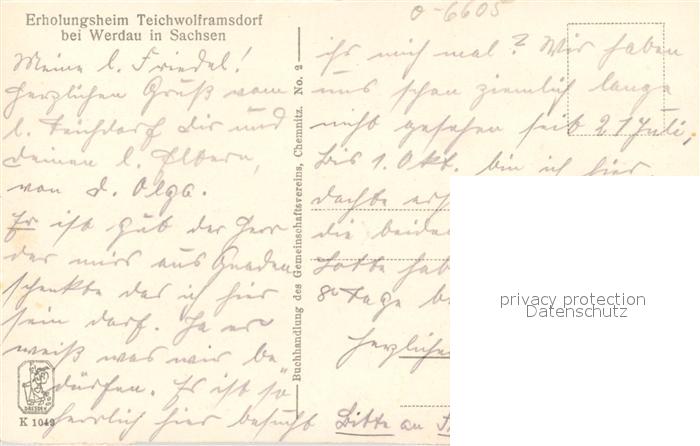 Erholungsheim Teichwolframsdorf
bei Werdau in Sachsen
o-6605
Meine l. Friedel!
Herzlichen Gruß vom
l. Teichdorf dir und
deinen l. Eltern,
von d. Olga.
Er ist gut der Herr
der mirs aus Gnaden
schenkte das ich hier
sein darf. Ja er
weiß was wir be
dürfen. Es ist so
herrlich hier besucht
K 1049
Buchhandlung des Gemeinschaftsvereins, Chemnitz. No. 2
ihr mich mal? Wir haben
uns schon ziemlich lange
nicht gesehen seit 21 Juli,
bis 1. Okt. bin ich hier
dachte
die beiden
Lotte hab
8 Tage
Herzlichen
Bitte an
privacy protection
Datenschutz